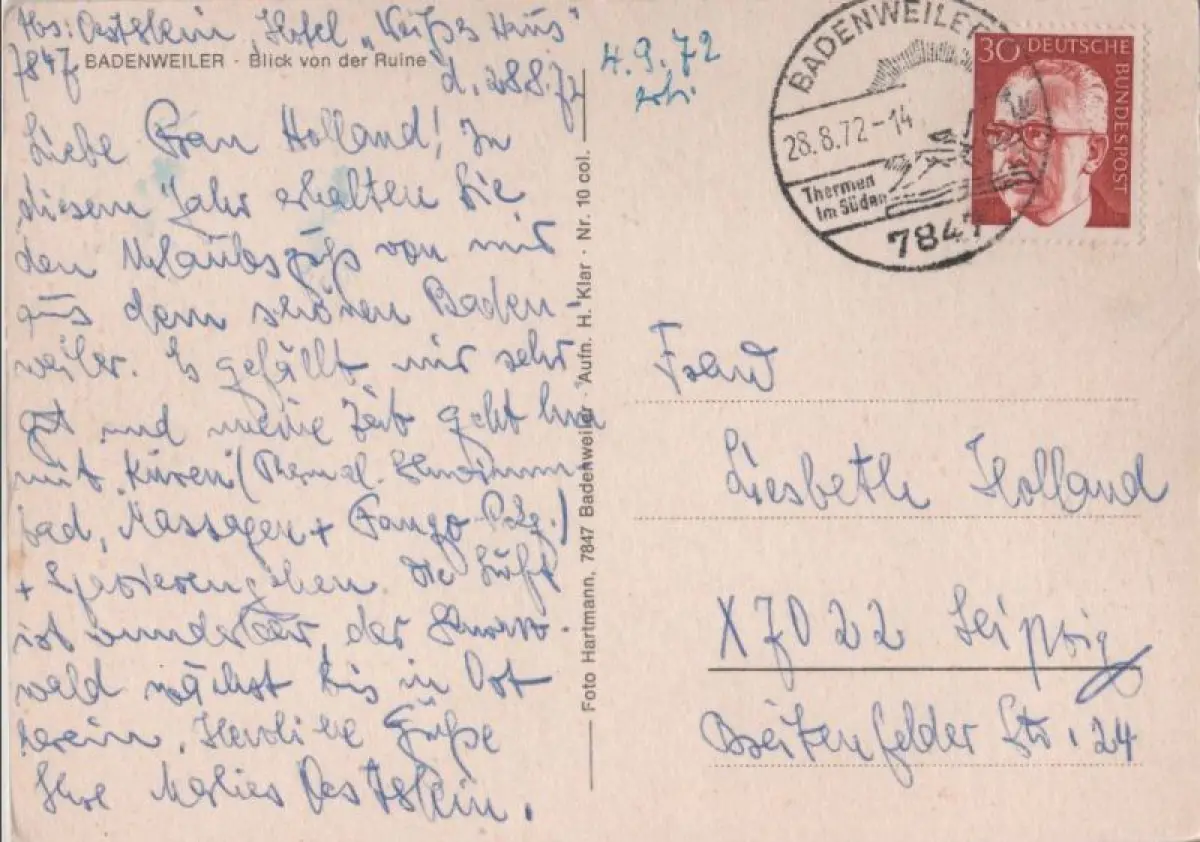 Abs: Oettstein, Hotel „Weißes Haus"
7847 BADENWEILER · Blick von der Ruine
d. 28.8.72
Liebe Frau Holland! In
diesem Jahr erhalten Sie
den Urlaubsgruß von mir
aus dem schönen Baden-
weiler. Es gefällt mir sehr
gut und meine Zeit geht hin
mit Kuren (Thermal-Schwimm-
bad, Massagen + Fango-Pckg.)
+ Spazierengehen. Die Luft
ist wunderbar, der Schwarz-
wald wächst bis in Ort
herein. Herzliche Grüße
Ihre Marlies Oettstein.
Foto Hartmann, 7847 Badenweiler · Aufn. H. Klar · Nr. 10 col.
4.9.72
BADENWEILER
28.8.72-14
Thermen
im Süden
7847
30 DEUTSCHE
BUNDESPOST
Frau
Liesbeth Holland
X 7022 Leipzig
Breitenfelder Str. 24